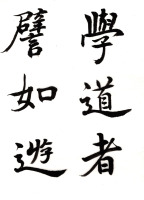 學道者
譬如遊